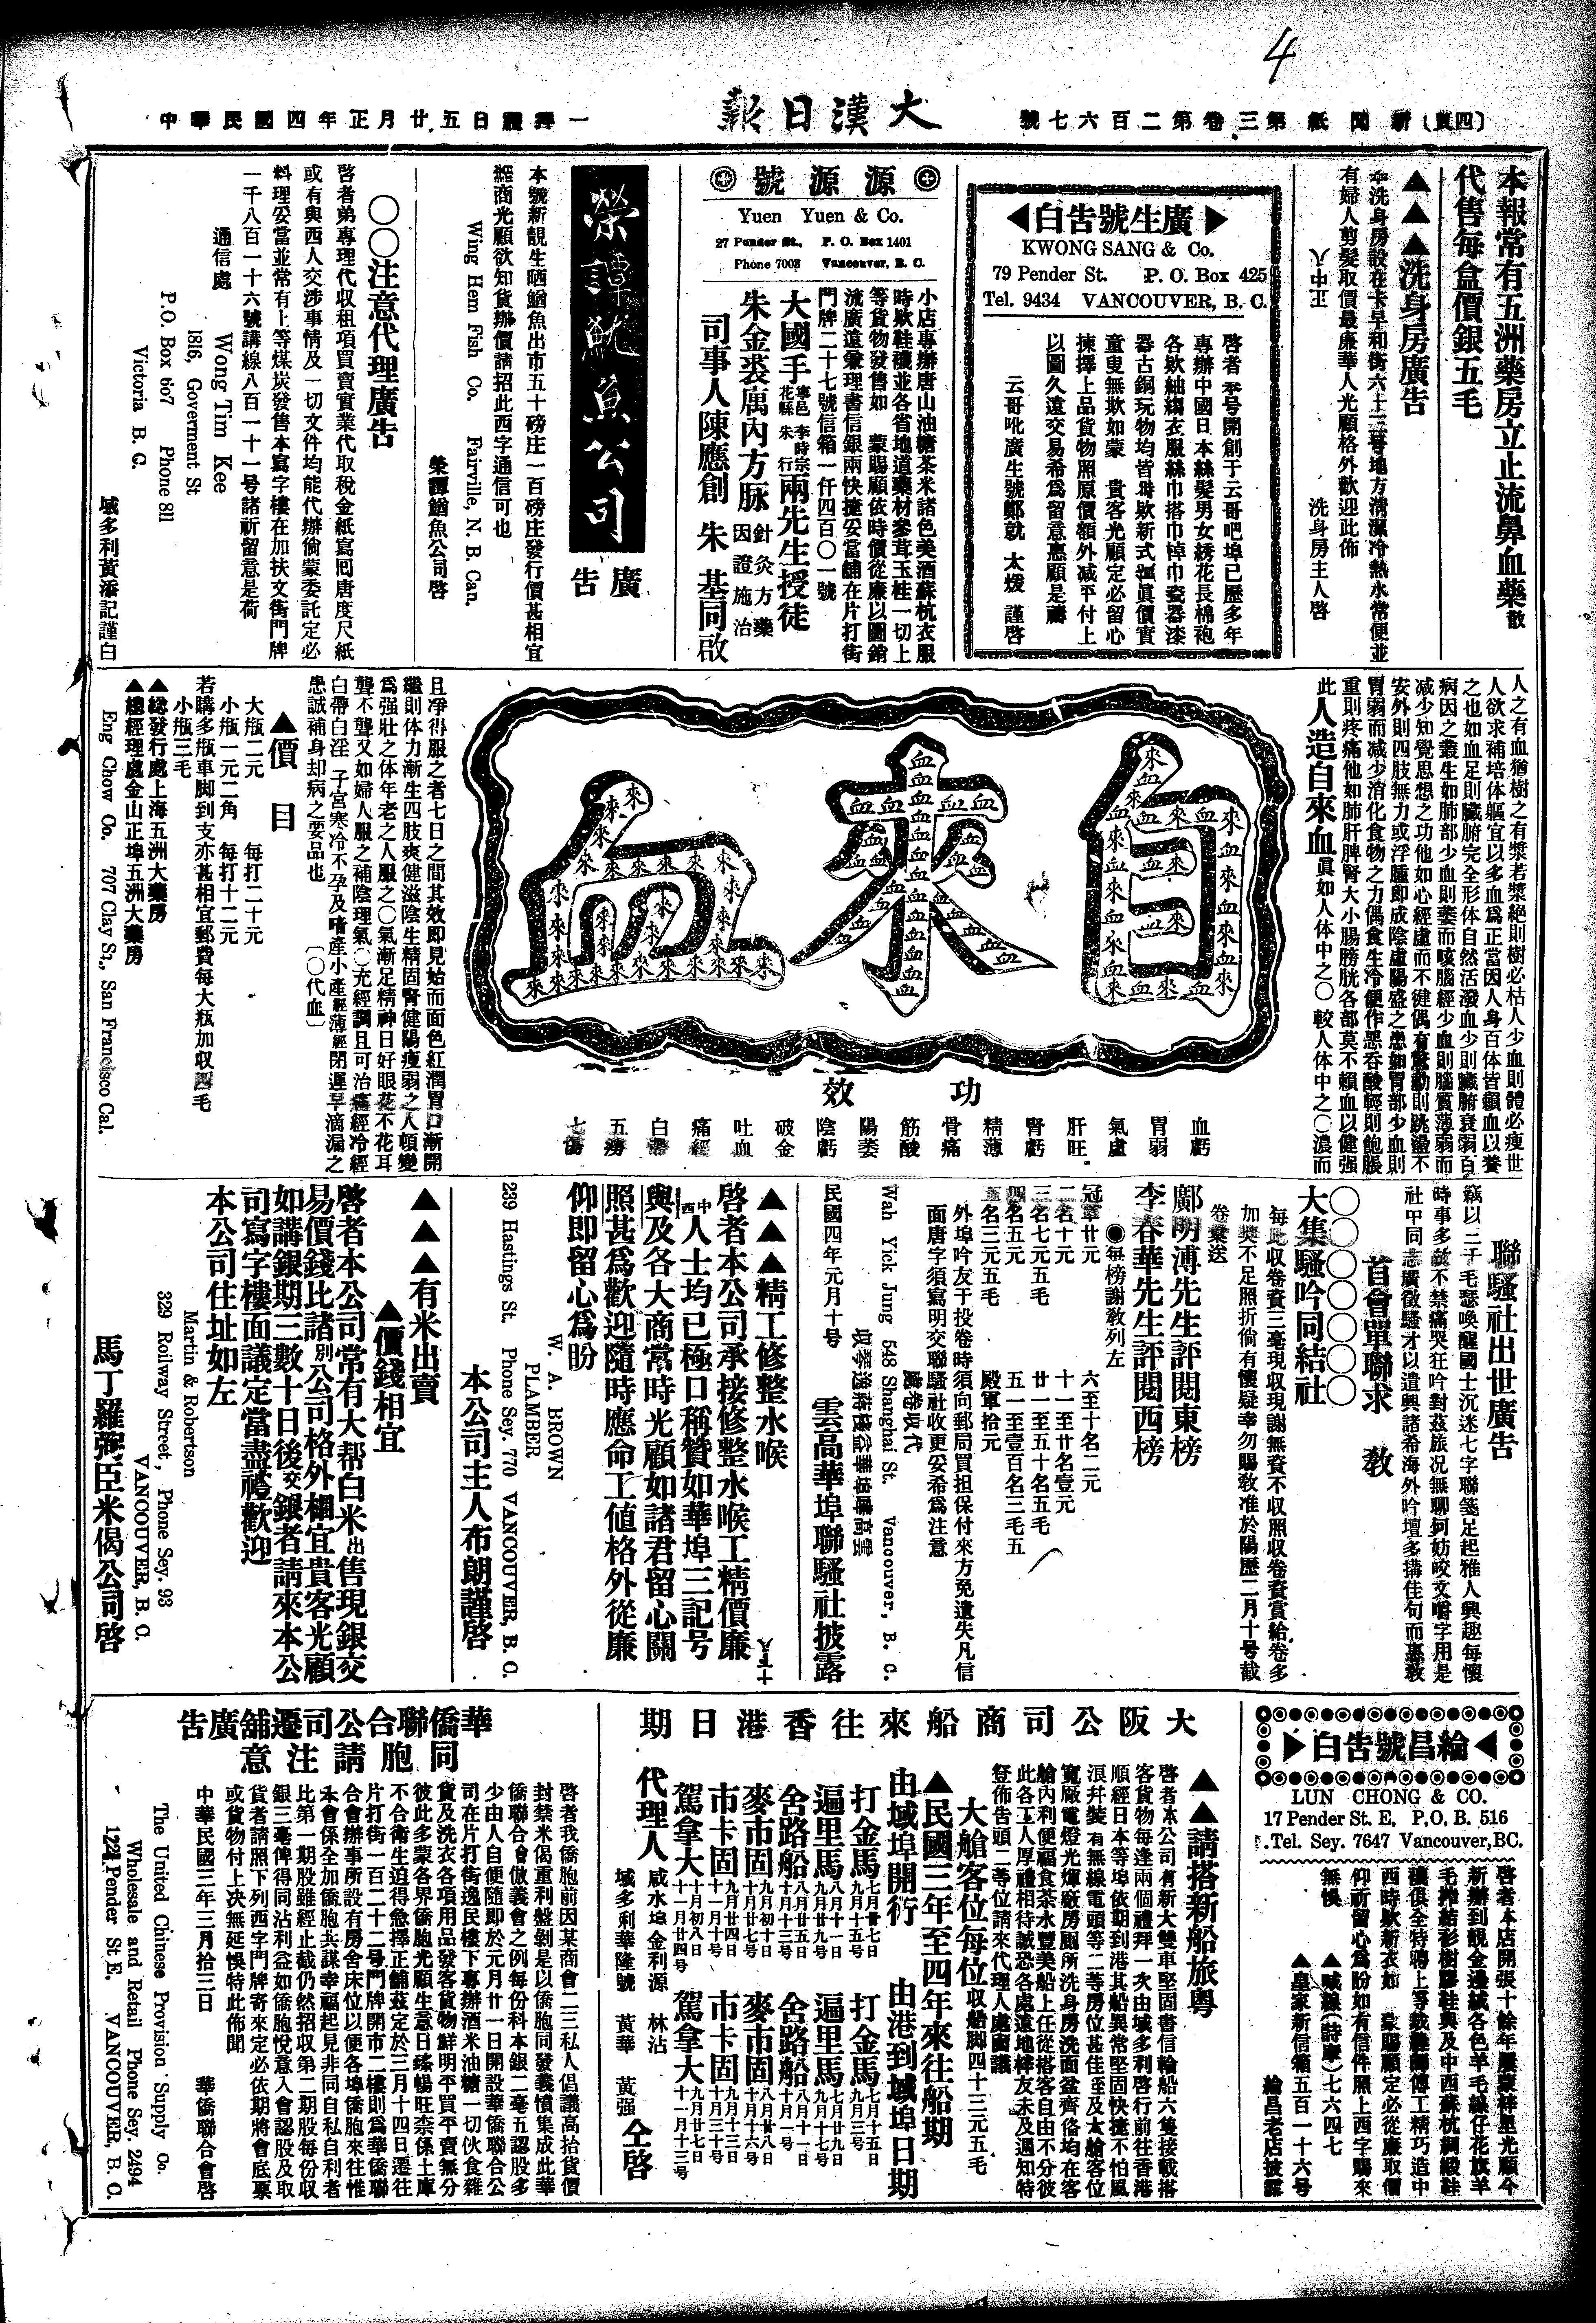 4
(四頁) 新聞紙第三卷第二百六七號
大漢日報
一拜禮日五廿月正年四國民華中
本報常有五洲藥房立止流鼻血藥散
代售每盒價銀五毛
▲▲▲洗身房廣告
本洗身房設在卡早和街六十二號地方清潔冷熱水常便並
有婦人剪髮取價最廉華人光顧格外歡迎此佈
洗身房主人啓
廣生號告白
KWONG SANG & Co.
79 Pender St. P. O. Box 425
Tel. 9434 VANCOUVER, B. C.
啓者本号開創于云哥吧埠已歷多年
專辦中國日本絲髮男女綉花長棉袍
各欵紬縐衣服絲巾搭巾棹巾瓷器漆
器古銅玩物均皆時欵新式價眞價實
童叟無欺如蒙 貴客光顧定必留心
揀擇上品貨物照原價額外减平付上
以圖久遠交易希爲留意惠顧是禱
云哥吪廣生號鄭就 太煖 謹啓
源源號
Yuen Yuen & Co.
27 Pender St., P. O. Box 1401
Phone 7003 Vancouver, B. C.
小店專辦唐山油糖茶米諸色美酒蘇杭衣服
時欵鞋襪並各省地道藥材參茸玉桂一切上
等貨物發售如 蒙賜顧依時價從廉以圖銷
流廣遠兼理書信銀兩快捷妥當舖在片打街
門牌二十七號信箱一仟四百〇一號
大國手 寧邑 李時宗 花縣 朱行 兩先生授徒
朱金裘厲內方脉 針灸方藥 因證施治
司事人陳應創 朱 基同啟
榮譚魷魚公司
廣告
本號新靚生晒鰌魚出市五十磅庄一百磅庄發行價甚相宜
經商光顧欲知貨辦價請招此西字通信可也
Wing Hem Fish Co. Fairville, N. B. Can.
榮譚鰌魚公司啓
〇〇注意代理廣告
啓者弟專理代収租項買賣實業代取稅金紙寫囘唐度尺紙
或有與西人交涉事情及一切文件均能代辦倘蒙委託定必
料理妥當並常有上等煤炭發售本寫字樓在加扶文街門牌
一千八百一十六號講線八百一十一号諸祈留意是荷
通信處
Wong Tim Kee
1816, Goverment St
P.O. Box 667 Phone 811
Victoria B. C.
域多利黃添記謹白
人之有血猶樹之有漿若漿絕則樹必枯人少血則體必瘦世
人欲求補培体軀宜以多血爲正當因人身百体皆賴血以養
之也如血足則臟腑完全形体自然活潑血少則臟腑衰弱百
病因之叢生如肺部少血則萎而咳腦經少血則腦質薄弱而
减少知覺思想之功他如心經虛而不徤偶有驚動則跳盪不
安外則四肢無力或浮腫即成陰虛陽盛之患如胃部少血則
胃弱而减少消化食物之力偶食生冷便作惡吞酸輕則飽脹
重則疼痛他如肺肝脾腎大小腸膀胱各部莫不賴血以健强
此人造自來血眞如人体中之〇較人体中之〇濃而
自來血
功效
血虧 胃弱 氣虛 肝旺 腎虧 精薄 骨痛 筋酸 陽萎 陰虧 破金 吐血 痛經 白帶 五癆 七傷
且净得服之者七日之間其效即見始而面色紅潤胃口漸開
繼則体力漸生四肢爽健滋陰生精固腎健陽瘦弱之人頓變
爲强壯之体年老之人服之〇氣漸足精神日好眼花不花耳
聾不聾又如婦人服之補陰理氣〇充經調且可治痛經冷經
白帶白淫 子宮寒冷不孕及暗產小產經薄經閉遲早滴漏之
患誠補身却病之要品也 〔〇代血〕
▲價目
大瓶二元 每打二十元
小瓶一元二角 每打十二元
若購多瓶車脚到支亦甚相宜郵費每大瓶加収四毛
小瓶三毛
▲總發行處上海五洲大藥房
▲總經理處金山正埠五洲大藥房
Eng Chow Co. 707 Clay St., San Francisco Cal.
聯騷社出世廣告
竊以二千毛瑟喚醒國士沉迷七字聯箋足起雅人興趣每懷
時事多故不禁痛哭狂吟對茲旅况無聊何妨咬文嚼字用是
社中同志廣徵騷才以遣興諸希海外吟壇多擣佳句而惠敎
首會單聯求 敎
〇〇〇〇〇〇〇
大集騷吟同結社
每此収卷賚三毫現収現謝無賚不収照収卷賚賞給卷多
加獎不足照折倘有懷疑幸勿賜敎准於陽歷二月十号截
卷彙送
鄺明溥先生評閱東榜
李春華先生評閱西榜
●每榜謝敎列左
冠軍廿元 六至十名二元
二名十元 十一至廿名壹元
三名七元五毛 廿一至五十名五毛
四名五元 五一至壹百名三毛五
五名三元五毛 殿軍拾元
外埠吟友于投卷時須向郵局買担保付來方免遺失凡信
面唐字須寫明交聯騷社收更妥希爲注意
Wah Yick Jung 548 Shanghai St. Vancouver, B. C.
民國四年元月十號 雲高華埠聯騷社披露
▲▲▲精工修整水喉
啓者本公司承接修整水喉工精價廉
中西人士均已極口稱贊如華埠三記号
與及各大商常時光顧如諸君留心關
照甚爲歡迎隨時應命工値格外從廉
仰即留心爲盼
W. A. BROWN
PLAMBER
239 Hastings St. Phone Sey. 770 VANCOUVER, B. C.
本公司主人布朗謹啓
▲▲▲有米出賣
▲價錢相宜
啓者本公司常有大帮白米出售現銀交
易價錢比諸別公司格外相宜貴客光顧
如講銀期三數十日後交銀者請來本公
司寫字樓面議定當盡禮歡迎
本公司住址如左
Martin & Robertson
329 Roilway Street, Phone Sey. 93
VANOOUVER, B. C.
馬丁羅弼臣米偈公司啓
綸昌號告白
LUN CHONG & CO.
17 Pender St. E, P.O. B. 516
Tel. Sey. 7647 Vancouver, BC.
啓者本店開張十餘年屢蒙梓里光顧今
西時欵新衣如 蒙賜顧定必從廉取價
仰祈留心爲盼如有信件照上西字賜來
無悞
▲喊線(詩摩)七六四七
▲皇家新信箱五百一十六号
綸昌老店披露
大阪公司商船來往香港日期
▲▲請搭新船旅粤
啓者本公司有新大雙車堅固書信輪船六隻接載搭
客貨物每逢兩個禮拜一次由域多利啓行前往香港
順經日本等埠依期到港其船異常堅固快捷不怕風
浪幷裝有無線電頭等二等房位甚佳至及大艙客位
寬厰電燈光煇廠房厠所洗身房洗面盆齊偹均在客
艙內利便福食茶水豐美船上任從搭客自由不分彼
此各工人厚禮相待誠恐各處遠地梓友未及週知特
登佈告頭二等位請來代理人處面議
大艙客位每位収船脚四十三元五毛
▲民國三年至四年來往船期
由域埠開行 由港到域埠日期
打金馬 七月廿七日 九月十五號 打金馬 七月十五日 九月三號
遍里馬 八月十一日 九月廿九號 遍里馬 七月廿九日 九月十七號
舍路船 八月廿五日 十月十三號 舍路船 八月十一日 十月一號
麥市固 九月初十日 十月廿七號 麥市固 八月廿八日 十月十六號
市卡固 九月廿四日 十一月十號 市卡固 九月十三日 十月三十號
駕拿大 十月初八日 十一月廿四號 駕拿大 九月廿七日 十一月十三號
代理人 咸水埠金利源 林沾 域多利華隆號 黃華 黃强 仝啓
華僑聯合公司遷舖廣告
同胞請注意
啓者我僑胞前因某商會二三私人倡議高抬貨價
封禁米偈重利盤剝是以僑胞同發義憤集成此華
僑聯合會倣義會之例每份科本銀二毫五認股多
少由人自便隨即於元月廿一日開設華僑聯合公
司在片打街逸民樓下專辦酒米油糖一切伙食雜
貨及洗衣各項用品發客貨物鮮明平買平賣無分
彼此多蒙各界僑胞光顧生意日緣暢旺柰係土庫
不合衛生迫得急擇正舖茲定於三月十四日遷往
片打街一百二十二號門牌開市二樓則爲華僑聯
合會辦事所設有房舍床位以便各埠僑胞來往惟
本會係全加僑胞共謀幸福起見非同自私自利者
比第一期股雖經止截仍然招収第二期股每份収
銀三毫俾得同沾利益如僑胞悅意入會認股及取
貨者請照下列西字門牌寄來定必依期將會底票
或貨物付上决無延悞特此佈聞
中華民國三年三月拾三日 華僑聯合會啓
The United Chinese Provision Supply Co.
Wholesale and Retail Phone Sey. 2494
122 Pender St E. VANOOUVER, B. C.